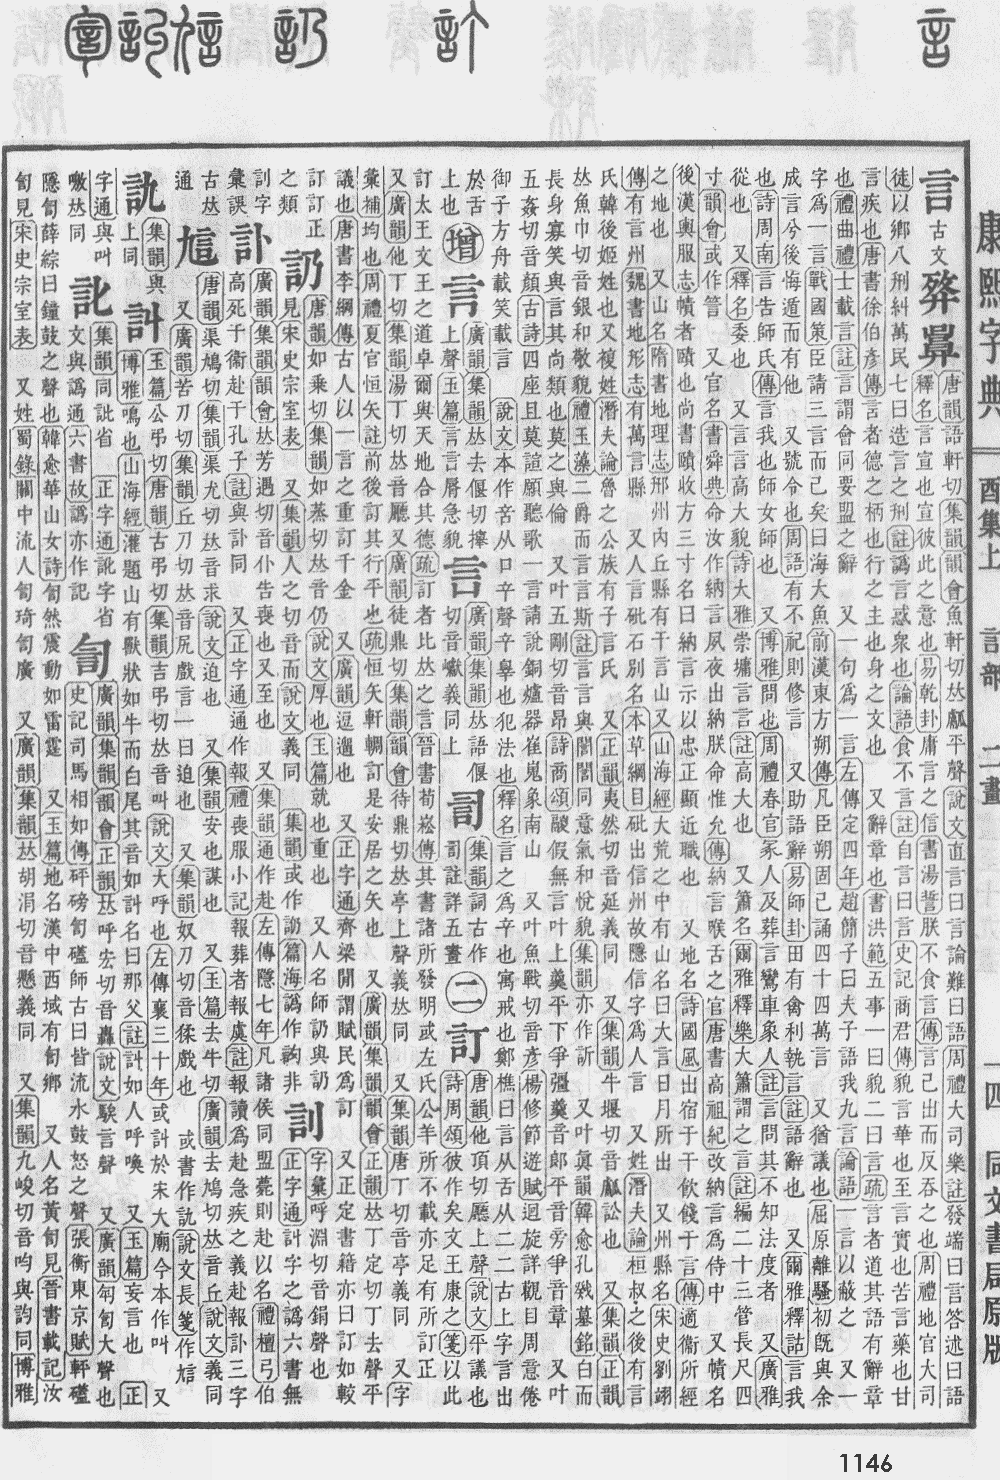 言 計 訒 訄 訆 訇
康熙字典 酉集上 言部 二畫 一一四一 同文書局原版
言 古文 𠱫 𠶷 唐韻語軒切集韻韻會魚軒切𠀤巘平聲說文直言曰言論難曰語周禮大司樂註發端曰言答述曰語
釋名言宣也宣彼此之意也易乾卦庸言之信書湯誓朕不食言傳言已出而反吞之也周禮地官大司
徒以鄉八刑糾萬民七曰造言之刑註訛言惑衆也論語食不言註自言曰言史記商君傳貌言華也至言實也苦言藥也甘
言疾也唐書徐伯彥傳言者德之柄也行之主也身之文也 又辭章也書洪範五事一曰貌二曰言疏言者道其語有辭章
也禮曲禮士載言註言謂會同要盟之辭 又一句爲一言左傳定四年趙簡子曰夫子語我九言論語一言以蔽之 又一
字爲一言戰國策臣請三言而已矣曰海大魚前漢東方朔傳凡臣朔固已誦四十四萬言 又猶議也屈原離騷初旣與余
成言兮後悔遁而有他 又號令也周語有不祀則修言 又助語辭易師卦田有禽利執言註語辭也 又爾雅釋詁言我
也詩周南言告師氏傳言我也師女師也 又博雅問也周禮春官冢人及葬言鸞車象人註言問其不知法度者 又廣雅
從也 又釋名委也 又言言高大貌詩大雅崇墉言言註高大也 又簫名爾雅釋樂大簫謂之言註編二十三管長尺四
寸韻會或作管 又官名書舜典命汝作納言夙夜出納朕命惟允傳納言喉舌之官唐書高祖紀改納言爲侍中 又幘名
後漢輿服志幘者賾也尚書賾收方三寸名曰納言示以忠正顯近職也 又地名詩國風出宿于干飮餞于言傳適衞所經
之地也 又山名隋書地理志邢州內丘縣有干言山 又山海經大荒之中有山名曰大言日月所出 又州縣名宋史劉翊
傳有言州魏書地形志有萬言縣 又人言砒石別名本草綱目砒出信州故隱信字爲人言 又姓潛夫論桓叔之後有言
氏韓後姬姓也又複姓潛夫論魯之公族有子言氏 又正韻夷然切音延義同 又集韻牛堰切音巘訟也 又集韻正韻
𠀤魚巾切音銀和敬貌禮玉藻二爵而言言斯註言言與誾誾同意氣和悅貌集韻亦作訢 又叶眞韻韓愈孔戣墓銘白而
長身寡笑與言其尚類也莫之與倫 又叶五剛切音昂詩商頌鬷假無言叶上羹平下爭彊羹音郎平音旁爭音章 又叶
五姦切音顏古詩四座且莫諠願聽歌一言請說銅爐器崔嵬象南山 又叶魚戰切音彥楊修節遊賦迴旋詳觀目周意倦
御于方舟載笑載言 說文本作䇂从口䇂聲䇂辠也犯法也釋名言之爲䇂也寓戒也鄭樵曰言从舌从二二古上字言出
於舌上也 增 言 廣韻集韻𠀤去偃切㩃上聲玉篇言言脣急貌 言 廣韻集韻𠀤語偃切音巘義同上 䛐 集韻詞古作䛐註詳五畫 二 訂 唐韻他頂切廳上聲說文平議也詩周頌彼作矣文王康之箋以此
訂大王文王之道卓爾與天地合其德疏訂者比𠀤之言晉書荀崧傳其書諸所發明或左氏公羊所不載亦足有所訂正
又廣韻他丁切集韻湯丁切𠀤音廳 又廣韻徒鼎切集韻韻會待鼎切𠀤亭上聲義𠀤同 又集韻唐丁切音亭義同 又字
彙補均也周禮夏官恒矢註前後訂其行平也疏恒矢軒輖訂是安居之矢也 又廣韻集韻韻會正韻𠀤丁定切丁去聲平
議也唐書李綱傳古人以一言之重訂千金 又廣韻逗遛也 又正字通齊梁閒謂賦民爲訂 又正定書籍亦曰訂如較
訂訂正之類 訒 唐韻如乘切集韻如蒸切𠀤音仍說文厚也玉篇就也重也 又人名師訒與訒見宋史宗室表 又集韻人之切音而說文義同 集韻或作訯篇海譌作䚮非 訓 字彙呼淵切音鋗聲也正字通訃字之譌六書無
訓字 訃 廣韻集韻韻會𠀤芳遇切音仆告喪也又至也 又集韻通作赴左傳隱七年凡諸侯同盟薨則赴以名禮檀弓伯高死于衞赴于孔子註與訃同 又正字通通作報禮喪服小記報葬者報虞註報讀爲赴急疾之義赴報訃三字
古𠀤通 訄 唐韻渠鳩切集韻渠尤切𠀤音求說文迫也 又集韻安也謀也 又玉篇去牛切廣韻去鳩切𠀤音丘說文義同 又廣韻苦刀切集韻丘刀切𠀤音尻戲言一曰迫也 又集韻奴刀切音猱戲也 或書作訅說文長箋作䛃
訅 集韻與訄上同 訆 玉篇公弔切唐韻古弔切集韻吉弔切𠀤音叫說文大呼也左傳襄三十年或訆於宋大廟今本作叫 又博雅鳴也山海經灌題山有獸狀如牛而白尾其音如訆名曰那父註訆如人呼喚 又玉篇妄言也 正
字通與叫噭𠀤同 訿 集韻同訛省 正字通訛字省文與譌通六書故譌亦作記 訇 廣韻集韻韻會正韻𠀤呼宏切音轟說文騃言聲 又廣韻匉訇大聲也史記司馬相如傳砰磅訇礚師古曰皆流水鼓怒之聲張衡東京賦軒礚
隱訇薛綜曰鐘鼓之聲也韓愈華山女詩訇然震動如雷霆 又玉篇地名漢中西域有訇鄉 又人名黃訇見晉書載記汝
訇見宋史宗室表 又姓蜀錄關中流人訇琦訇廣 又廣韻集韻𠀤胡涓切音懸義同 又集韻九峻切音呁與訽同博雅
1146